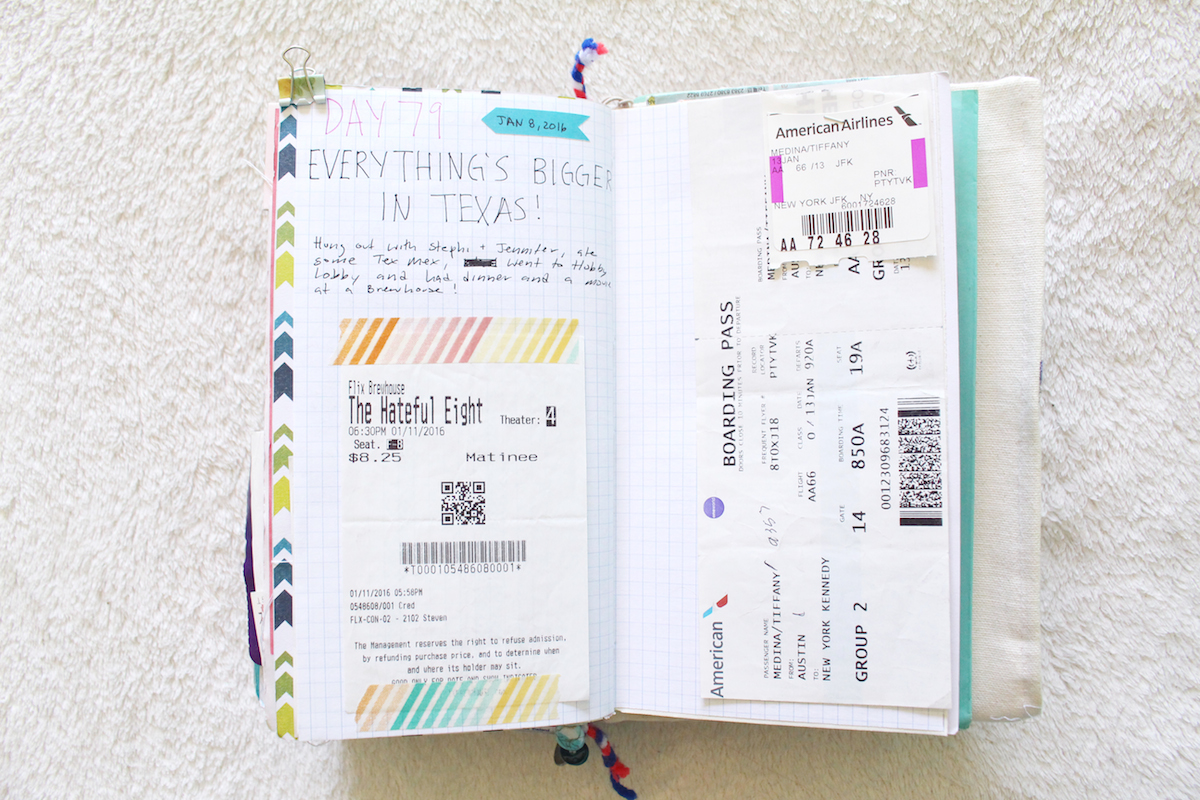 DAY 79
JAN 8, 2016
EVERYTHING'S BIGGER
IN TEXAS!
Hung out with Stephi + Jennifer, ate
some Tex Mex, went to Hobby
Lobby and had dinner and a movie
at a Brewhouse!
Flix Brewhouse
The Hateful Eight
Theater: 4
06:30PM 01/11/2016
Seat. F-8
$8.25 Matinee
*T000105486080001*
01/11/2016 05:58PM
0548608/001 Cred
FLX-CON-02 - 2102 Steven
The Management reserves the right to refuse admission,
by refunding purchase price, and to determine when
and where its holder may sit.
GOOD ONLY FOR DATE AND SHOW INDICATED
American Airlines
MEDINA/TIFFANY
13JAN
AA 66 /13 JFK
PNR
PTYTVK
NEW YORK JFK, NY
6001724628
AA 72 46 28
BOARDING PASS
MEDINA/
FROM:
AUS
TO:
NE
AA
GR
13
BOARDING PASS
DOORS CLOSE 10 MINUTES PRIOR TO DEPARTURE
American
PASSENGER NAME
MEDINA/TIFFANY/
FROM:
AUSTIN
TO:
NEW YORK KENNEDY
GROUP 2
FREQUENT FLYER #
8TOXJ18
RECORD
LOCATOR
PTYTVK
FLIGHT
AA66
CLASS
DATE
O / 13JAN
DEPARTS
920A
GATE
14
BOARDING TIME
850A
SEAT
19A
0012309683124